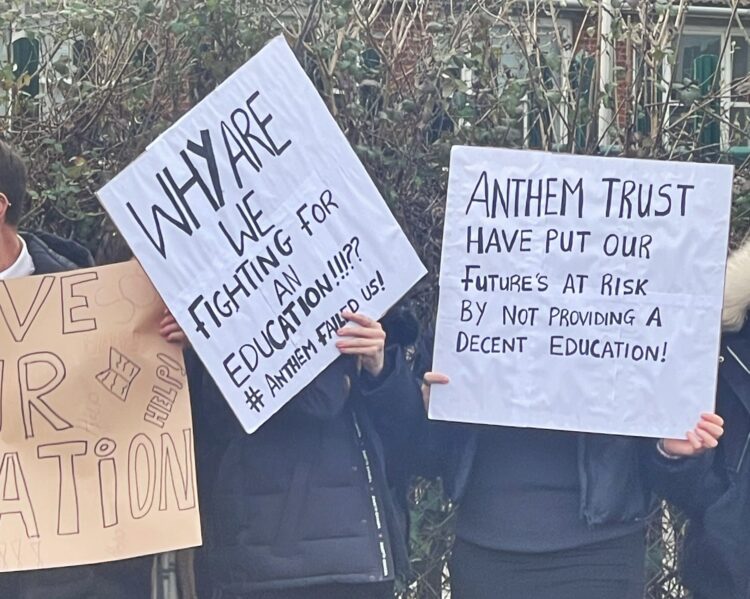 VE
UR
ATiON
HELP!
WHY ARE
WE
FIGHTING FOR
AN
EDUCATION!!!??
# ANTHEM FAILED US!
ANTHEM TRUST
HAVE PUT OUR
FUTURE'S AT RISK
BY NOT PROVIDING A
DECENT EDUCATION!